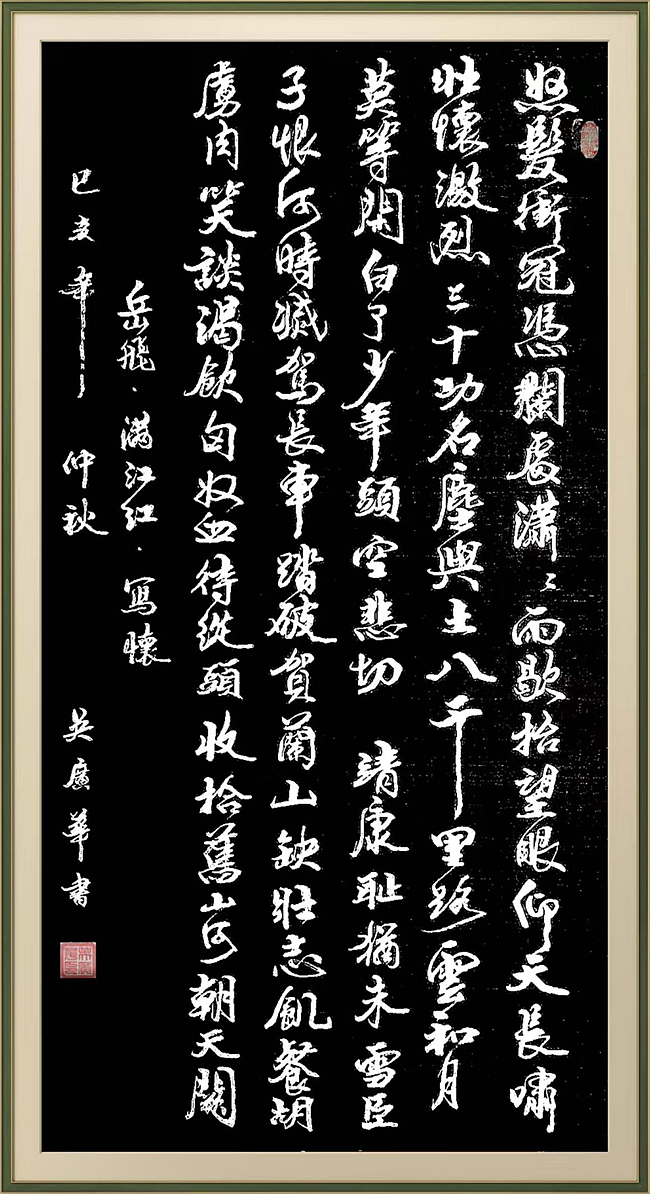 怒髮衝冠憑欄處瀟〻雨歇抬望眼仰天長嘯
壯懷激烈三十功名塵與土八千里路雲和月
莫等閑白了少年頭空悲切 靖康恥猶未雪臣
子恨何時滅駕長車踏破賀蘭山缺壯志飢餐胡
虜肉笑談渴飲匈奴血待從頭收拾舊山河朝天闕
岳飛·滿江紅·寫懷
己亥年 仲秋 吳廣華書